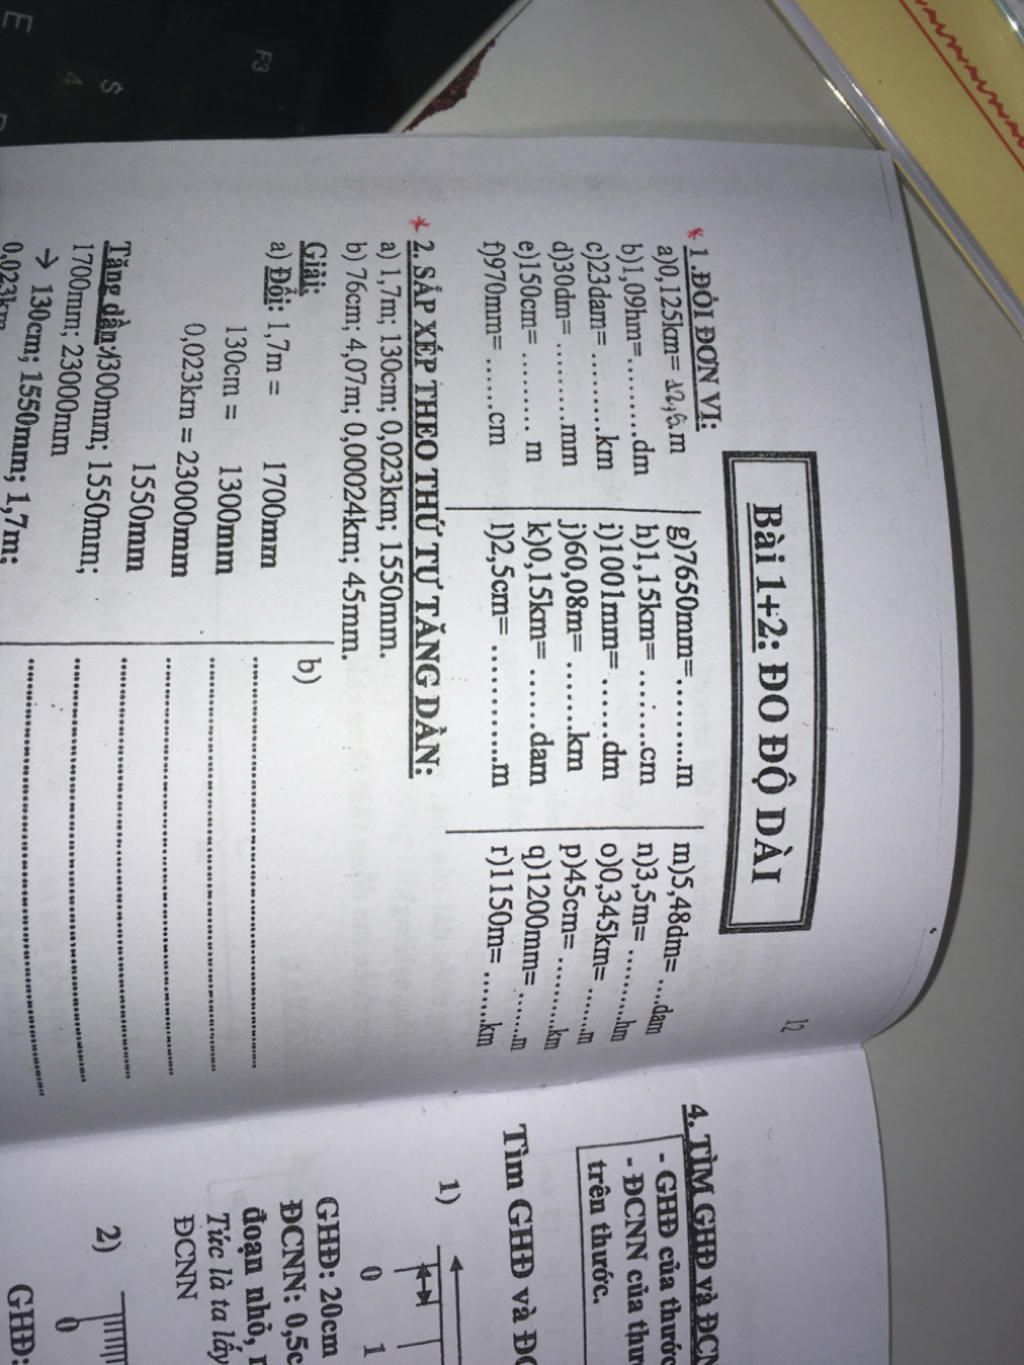 12
Bài 1+2: ĐO ĐỘ DÀI
* 1 .ĐỔI ĐƠN VỊ:
a)0,125km= 12,5 m
b)1,09hm=.........dm
c)23dam= ........km
d)30dm= .........mm
e)150cm= ......... m
f)970mm= ......cm
g)7650mm=.........m
h)1,15km= ........cm
i)1001mm= ......dm
j)60,08m= .......km
k)0,15km= ......dam
l)2,5cm= ...........m
m)5,48dm= ....dam
n)3,5m= ..........hm
o)0,345km= .......m
p)45cm= ..........km
q)1200mm= ........m
r)1150m= .......km
* 2. SẮP XẾP THEO THỨ TỰ TĂNG DẦN:
a) 1,7m; 130cm; 0,023km; 1550mm.
b) 76cm; 4,07m; 0,00024km; 45mm.
Giải:
a) Đổi: 1,7m = 1700mm
130cm = 1300mm
0,023km = 23000mm
1550mm
Tăng dần:1300mm; 1550mm;
1700mm; 23000mm
→ 130cm; 1550mm; 1,7m;
0,023km
b)
4. TÌM GHĐ và ĐCN
- GHĐ của thước
- ĐCNN của thư
trên thước.
Tìm GHĐ và ĐC
1)
0 1
GHĐ: 20cm
ĐCNN: 0,5c
đoạn nhỏ,
Tức là ta lấy
ĐCNN
2)
0
GHĐ:
F3
E
$
4